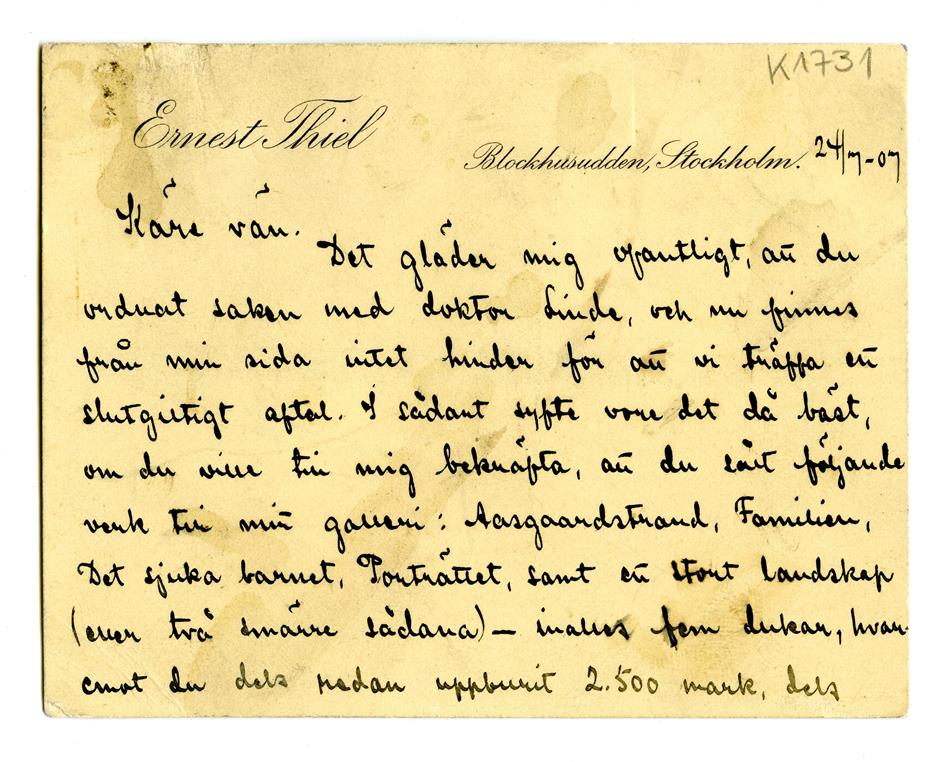 K1731
Ernest Thiel
Blockhusudden, Stockholm. 24/7-07
Käre vän.
Det gläder mig ofantligt, att du
ordnat saken med doktor Linde, och nu finnes
från min sida intet hinder för att vi träffa ett
slutgiltigt aftal. I sådant syfte vore det då bäst,
om du ville till mig bekräfta, att du sålt följande
verk till mitt galleri: Aasgaardstrand, Familien,
Det sjuka barnet, Porträttet, samt ett stort landskap
(eller två smärre sådana) — inalles fem dukar, hvar-
emot du dels redan uppburit 2.500 mark, dels